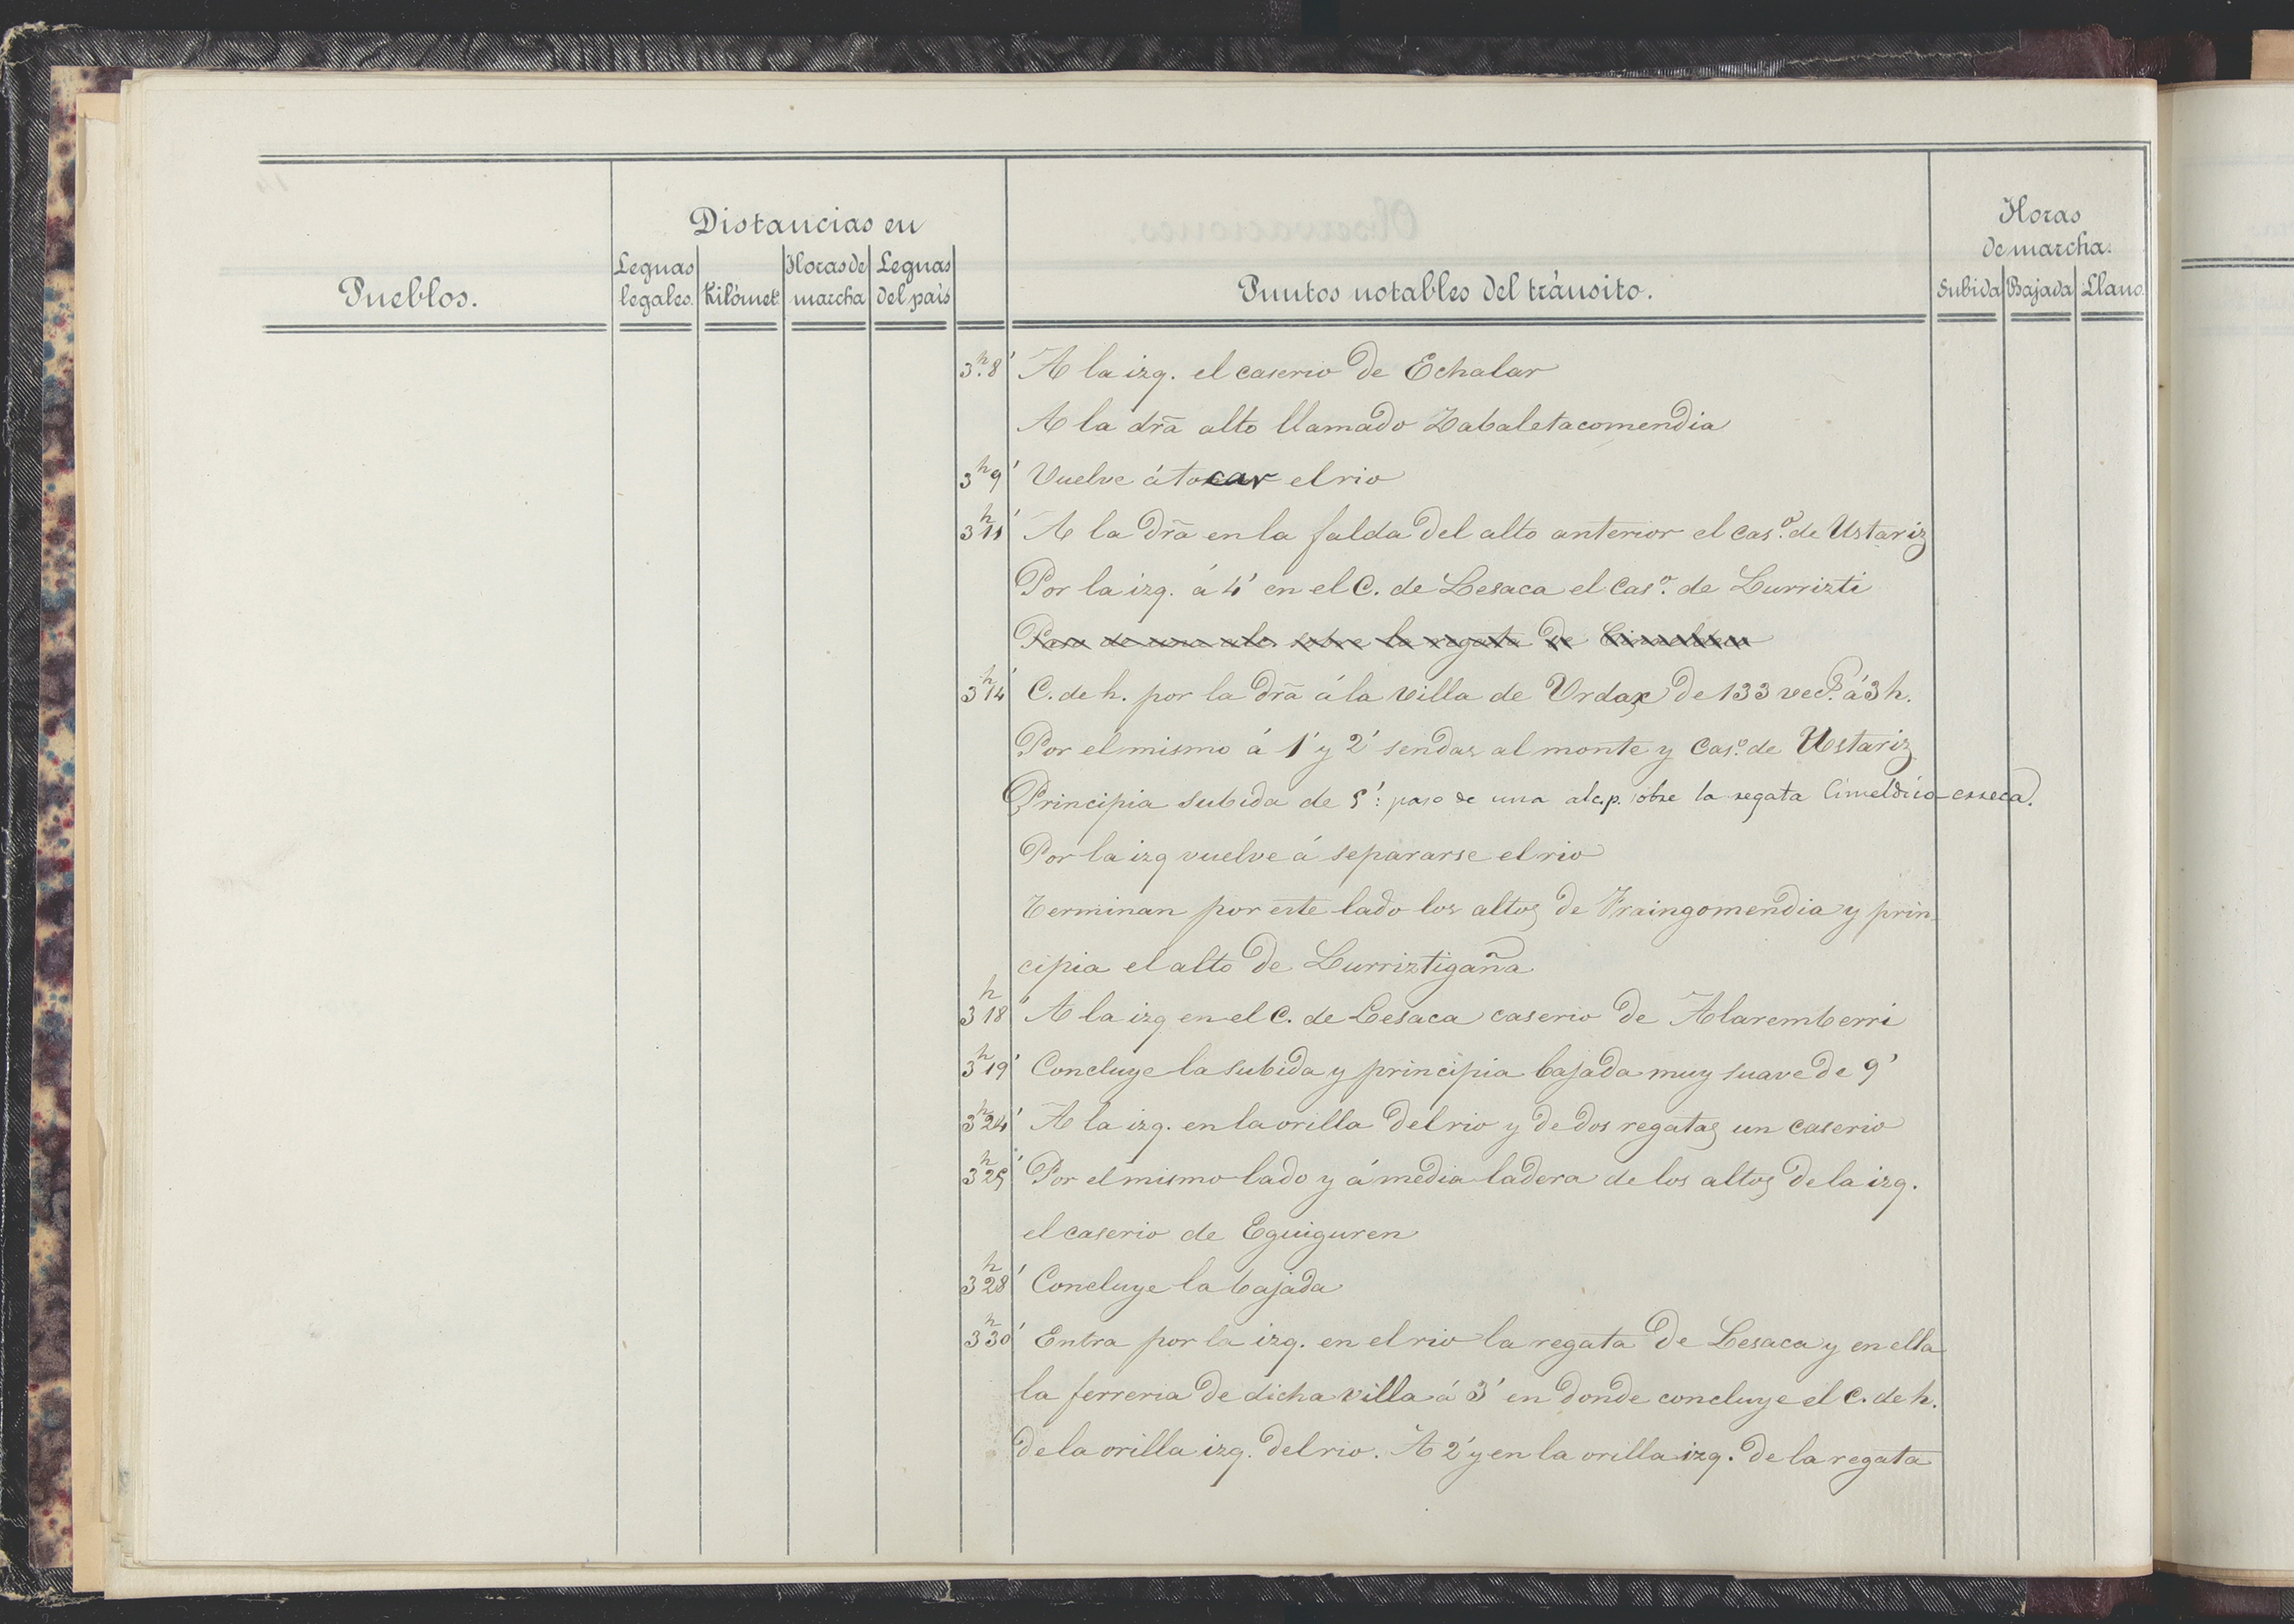 Distancias en
Horas
de marcha.
Pueblos.
Leguas legales.
Kilómet.
Horas de marcha
Leguas del país
Puntos notables del tránsito.
Subida
Bajada
Llano.
3h.8' A la izq. el caserio de Echalar
A la dr̃a alto llamado Zabaletacomendia
3h9' Vuelve á tocar el rio
3h11' A la dr̃a en la falda del alto anterior el cas.º de Ustariz
Por la izq. á 4' en el C. de Lesaca el Cas.º de Lurrizti
Paso de una alc. sobre la regata de
3h14' C. de h. por la dr̃a á la villa de Urdax de 133 vec.s á 3 h.
Por el mismo á 1' y 2' sendas al monte y Cas.º de Ustariz
Principia subida de 5': paso de una alc.p. sobre la regata Cimeldico-erreca.
Por la izq vuelve á separarse el rio
Terminan por este lado los altos de Fraingomendia y prin-
cipia el alto de Lurriztigaña
3h18' A la izq en el C. de Lesaca caserio de Alaremberri
3h19' Concluye la subida y principia bajada muy suave de 9'
3h24' A la izq. en la orilla del rio y de dos regatas un caserio
3h25' Por el mismo lado y á media ladera de los altos de la izq.
el caserio de Eguiguren
3h28' Concluye la bajada
3h30' Entra por la izq. en el rio la regata de Lesaca y en ella
la ferreria de dicha villa á 3' en donde concluye el C. de h.
de la orilla izq. del rio. A 2' y en la orilla izq. de la regata